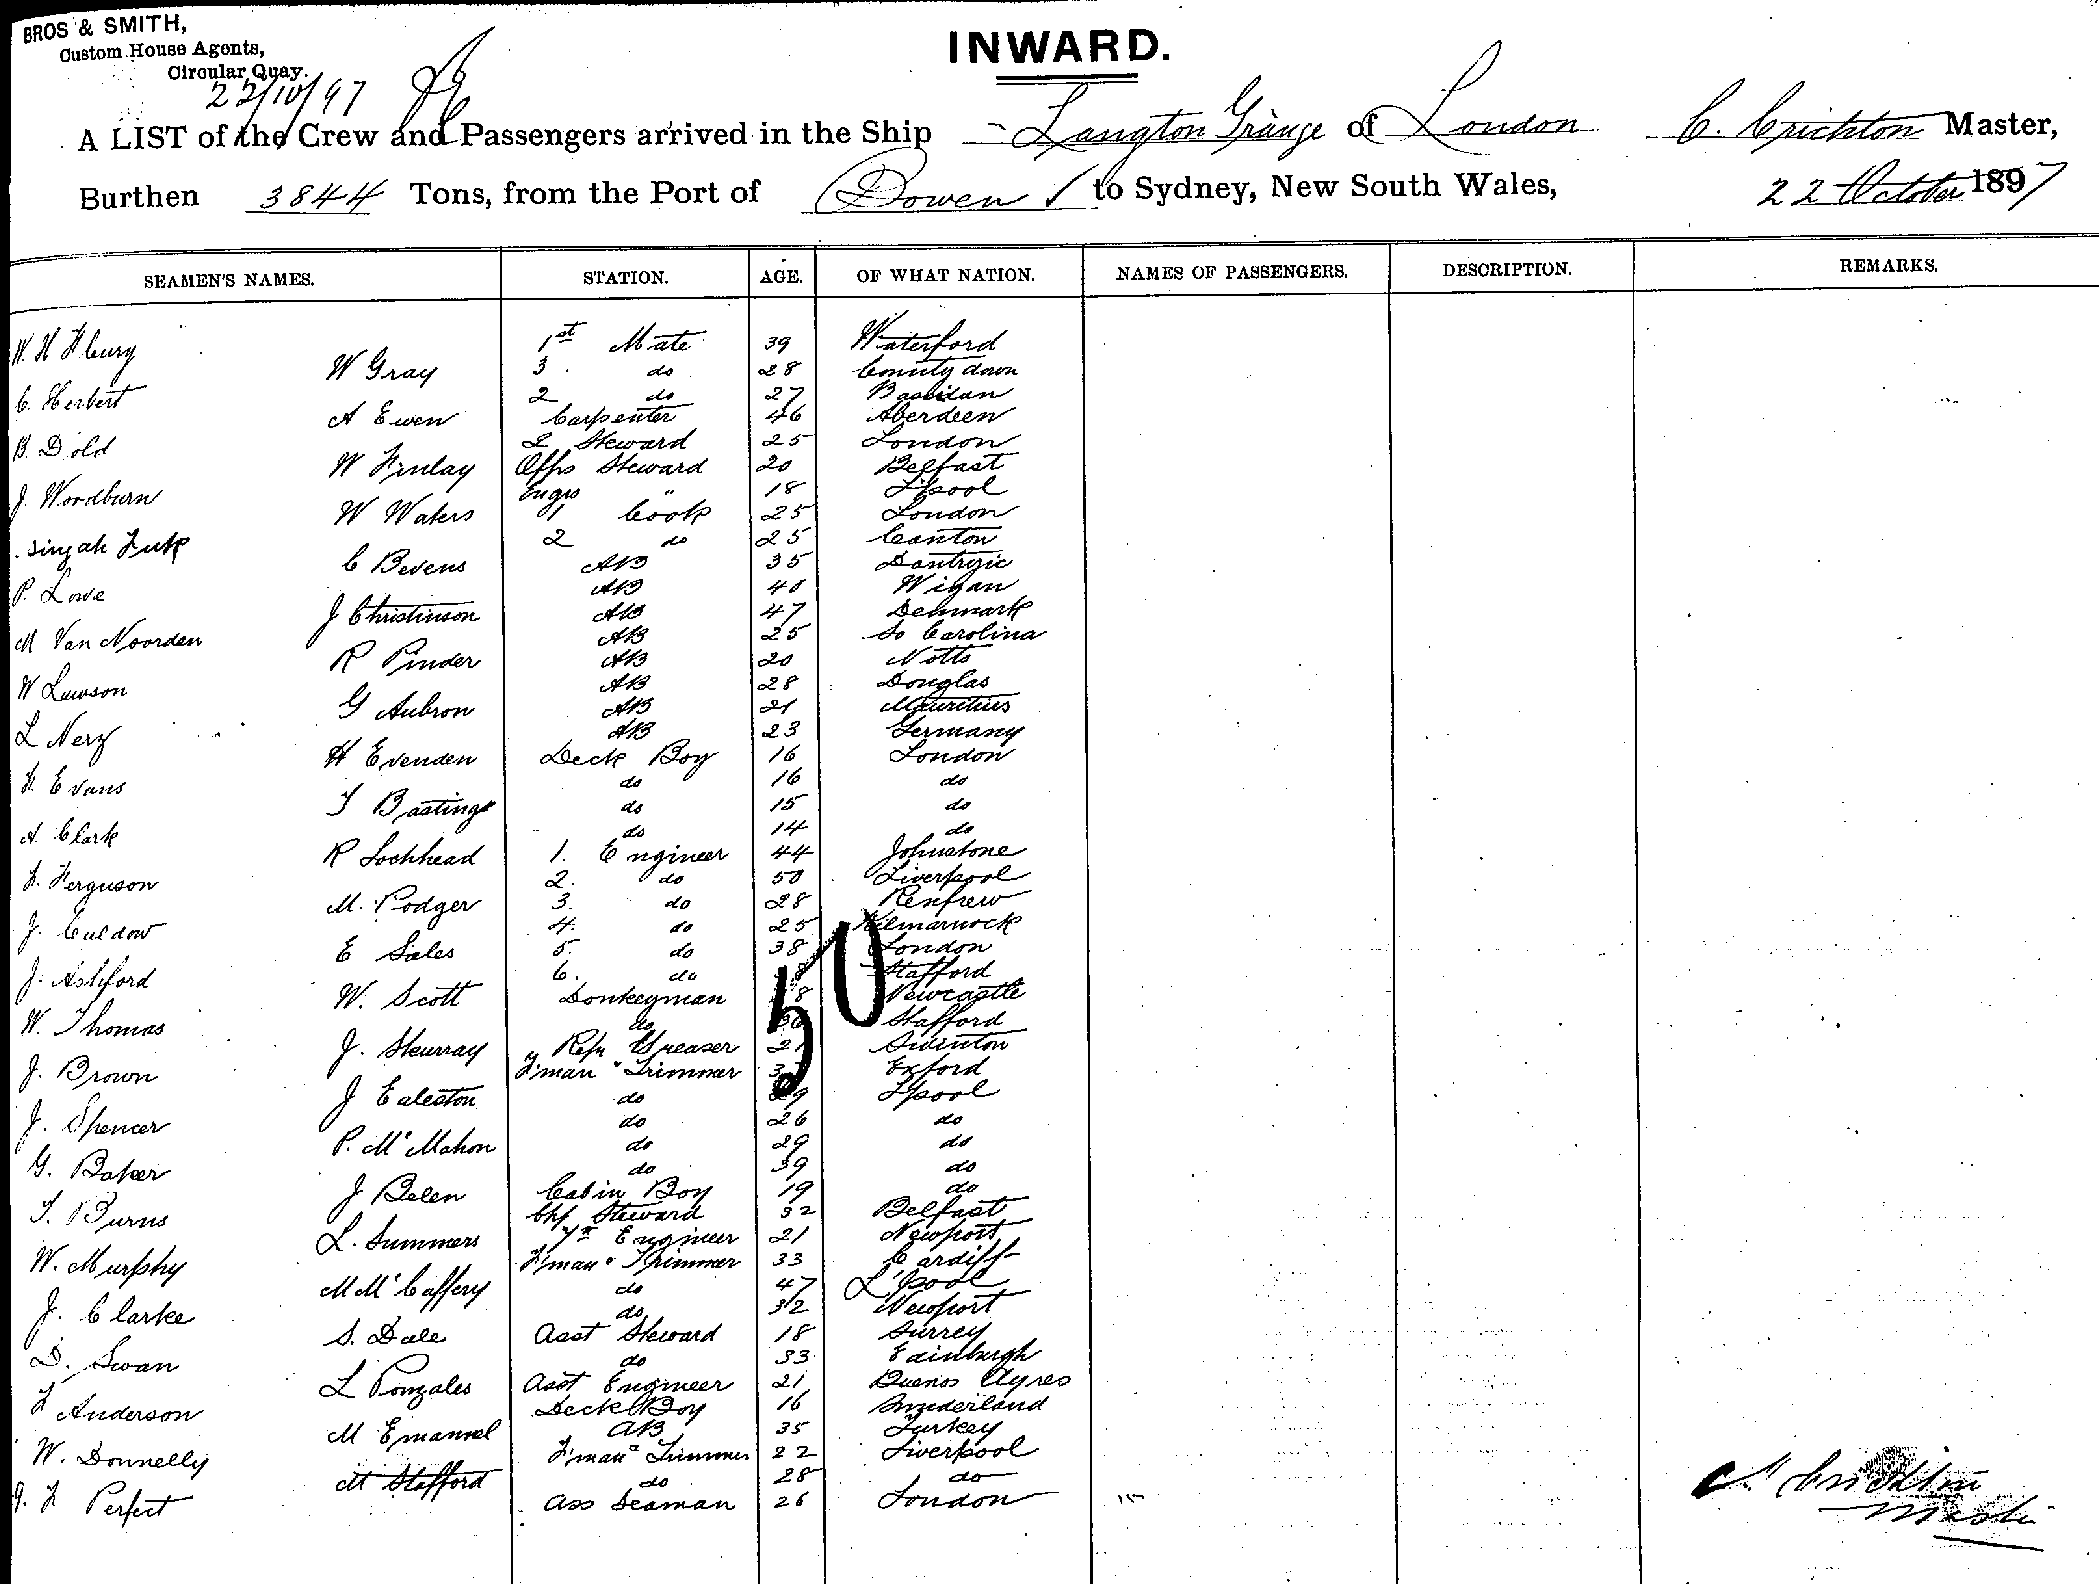 BROS & SMITH,
Custom House Agents,
Circular Quay.
22/10/97
INWARD.
A LIST of the Crew and Passengers arrived in the Ship Langton Grange of London C. Crichton Master,
Burthen 3844 Tons, from the Port of Bowen to Sydney, New South Wales, 22 October 1897
SEAMEN'S NAMES. STATION. AGE. OF WHAT NATION. NAMES OF PASSENGERS. DESCRIPTION. REMARKS.
W. H. 1st Mate 39 Waterford
W Gray 3 do 28 County down
C. Herbert 2 do 27
A Ewen Carpenter 46 Aberdeen
B. Dold 2 Steward 25 London
W Finlay Offrs Steward 20 Belfast
J. Woodburn Engrs " 18 L'pool
W Waters 1 Cook 25 London
2 do 25 Canton
C Bevens AB 35
P. Lowe AB 40 Wigan
J Christinson AB 47 Denmark
M Van Noorden AB 25 So Carolina
R Pinder AB 20 Notts
W Lawson AB 28 Douglas
G Aubron AB 21 Mauritius
L Nerz AB 23 Germany
H Evenden Deck Boy 16 London
F. Evans do 16 do
T Bastings do 15 do
A. Clark do 14 do
R Lochhead 1. Engineer 44 Johnstone
F. Ferguson 2. do 50 Liverpool
M. Podger 3. do 28 Renfrew
J. Culdow 4. do 25 Kilmarnock
E Sales 5. do 38 London
J. Ashford 6. do Stafford
W. Scott Donkeyman Newcastle
W. Thomas do Stafford
J. Skurray Refr Greaser 21 Swinton
J. Brown F'man & Trimmer Exford
J Ealeston do L'pool
J. Spencer do 26 do
P. McMahon do 29 do
G. Baker do 39 do
J Belen Cabin Boy 19 do
T. Burns Chf Steward 32 Belfast
L. Summers 7th Engineer 21 Newport
W. Murphy F'man & Trimmer 33 Cardiff
M McCaffery do 47 L'pool
J. Clarke do 32 Newport
S. Dale Asst Steward 18 Surrey
D. Swan do 33 Edinburgh
L Ponzales Asst Engineer 21 Buenos Ayres
F Anderson Deck Boy 16 Sunderland
M Emanuel AB 35 Turkey
W. Donnelly F'man & Trimmer 22 Liverpool
M Stafford do 28 do
J. F Perfect Ass Seaman 26 London
50
C. Crichton
Master